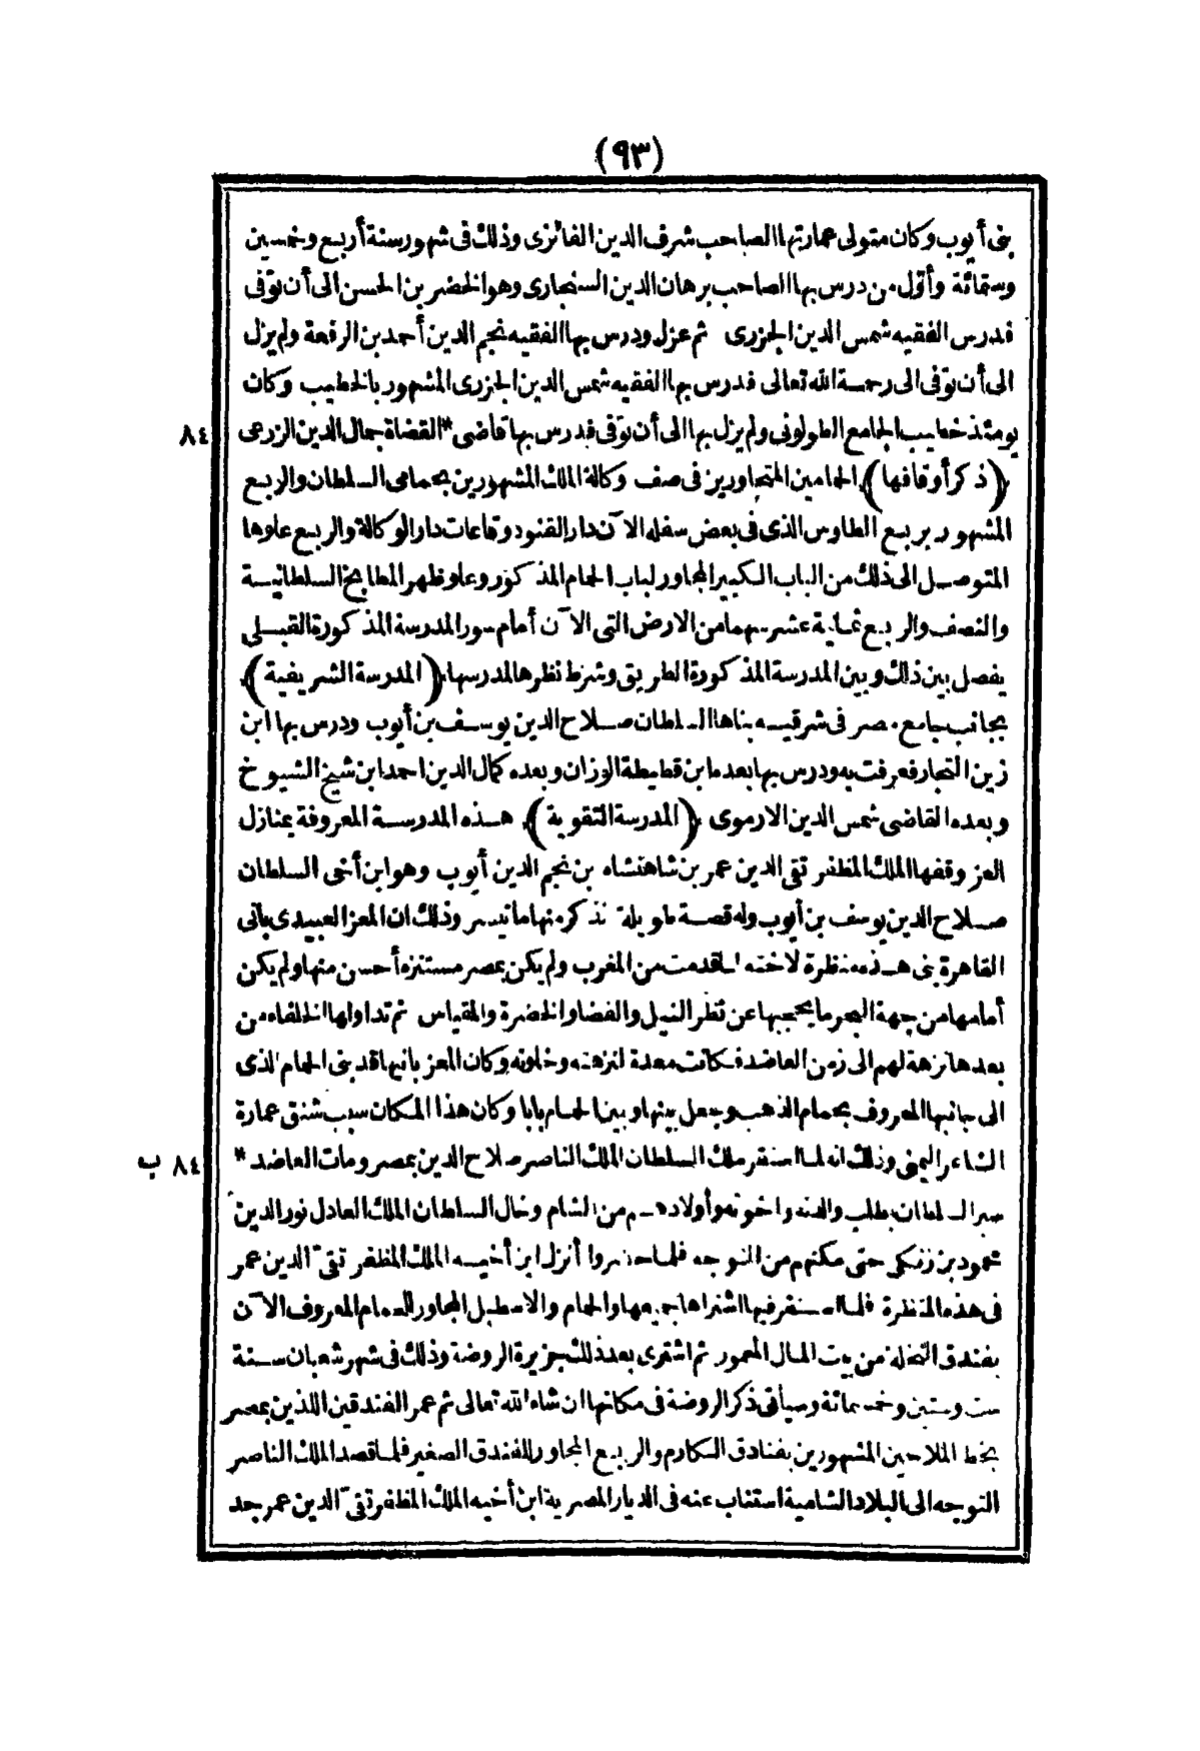 (٩٣)
بنى أيوب وكان متولى عمارتها الصاحب شرف الدين الفائزى وذلك فى شهور سنة أربع وخمسين
وستمائة وأول من درس بها الصاحب برهان الدين السنجارى وهو الخضر بن الحسن الى أن توفى
فدرس الفقيه شمس الدين الجزرى ثم عزل ودرس بها الفقيه نجم الدين أحمد بن الرفعة ولم يزل
الى أن توفى الى رحمة الله تعالى فدرس بها الفقيه شمس الدين الجزرى المشهور بالخطيب وكان
يومئذ خطيب الجامع الطولونى ولم يزل بها الى أن توفى فدرس بها قاضى * القضاة جمال الدين الزرعى
٨٤
(ذكر أوقافها) الحمامين المتجاورين فى صف وكالة الملك المشهورين بحمامى السلطان والربع
المشهور بربع الطاوس الذى فى بعض سفله الآن دار القنود وقاعات دار الوكالة والربع علوها
المتوصل الى ذلك من الباب الكبير المجاور لباب الحمام المذكور وعلو ظهر المطابخ السلطانية
والنصف والربع ثمانية عشر سهما من الارض التى الآن أمام سور المدرسة المذكورة القبلى
يفصل بين ذلك وبين المدرسة المذكورة الطريق وشرط نظرها لمدرسها (المدرسة الشريفية)
بجانب جامع مصر فى شرقيه بناها السلطان صلاح الدين يوسف بن أيوب ودرس بها ابن
زين التجار فعرفت به ودرس بها بعده ابن قطيطة الوزان وبعده كمال الدين احمد ابن شيخ الشيوخ
وبعده القاضى شمس الدين الارموى (المدرسة التقوية) هذه المدرسة المعروفة بمنازل
العز وقفها الملك المظفر تقى الدين عمر بن شاهنشاه بن نجم الدين أيوب وهو ابن أخى السلطان
صلاح الدين يوسف بن أيوب وله قصة طويلة نذكر منها ما تيسر وذلك ان المعز العبيدى بانى
القاهرة بنى هذه منظرة لاخته لما قدمت من المغرب ولم يكن بمصر مستنزه أحسن منها ولم يكن
أمامها من جهة البحر ما يحجبها عن نظر النيل والفضا والخضرة والمقياس ثم تداولها الخلفاء من
بعدها نزهة لهم الى زمن العاضد فكانت معدة لنزهته وخلوته وكان المعز بانيها قد بنى الحمام الذى
الى جانبها المعروف بحمام الذهب وجعل بينها وبين الحمام بابا وكان هذا المكان سبب شنق عمارة
الشاعر اليمنى وذلك انه لما استقر ملك السلطان الملك الناصر صلاح الدين بمصر ومات العاضد *
٨٤ ب
سير السلطان بطلب والده واخوته وأولادهم من الشام وخال السلطان الملك العادل نور الدين
محمود بن زنكى حتى مكنهم من التوجه فلما حضروا أنزل ابن أخيه الملك المظفر تقى الدين عمر
فى هذه المنظرة فلما استقر فيها اشتراها جميعها والحمام والاسطبل المجاور للحمام المعروف الآن
بفندق النخلة من بيت المال المعمور ثم اشترى بعد ذلك جزيرة الروضة وذلك فى شهر شعبان سنة
ست وستين وخمسمائة وسيأتى ذكر الروضة فى مكانها ان شاء الله تعالى ثم عمر الفندقين اللذين بمصر
بخط الملاحين المشهورين بفنادق الكارم والربع المجاور للفندق الصغير فلما قصد الملك الناصر
التوجه الى البلاد الشامية استناب عنه فى الديار المصرية ابن أخيه الملك المظفر تقى الدين عمر جد